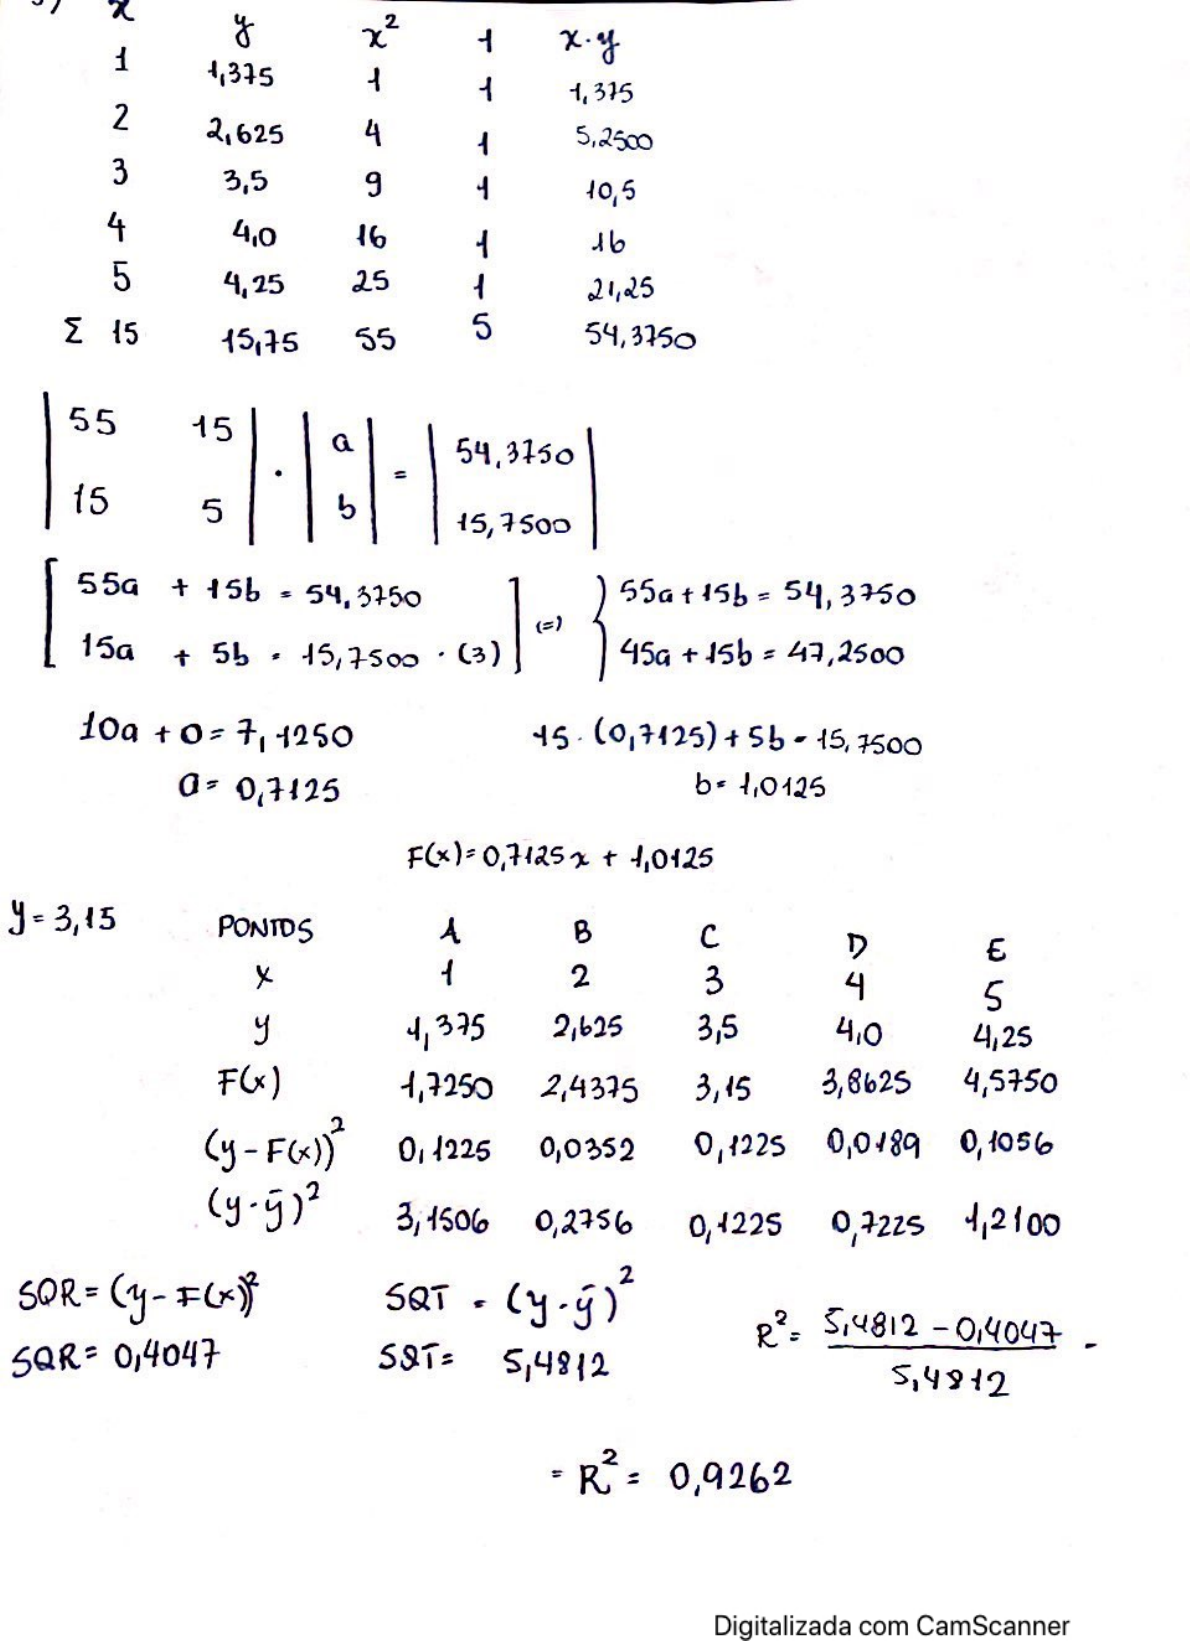 x y x² 1 x.y
1 1,375 1 1 1,375
2 2,625 4 1 5,2500
3 3,5 9 1 10,5
4 4,0 16 1 16
5 4,25 25 1 21,25
Σ 15 15,75 55 5 54,3750
| 55 15 | . | a | = | 54,3750 |
| 15 5 | | b | | 15,7500 |
[ 55a + 15b = 54,3750 ] (=) { 55a + 15b = 54,3750
15a + 5b = 15,7500 . (3) 45a + 15b = 47,2500
10a + 0 = 7,1250 15. (0,7125) + 5b = 15,7500
a = 0,7125 b = 1,0125
F(x) = 0,7125x + 1,0125
y = 3,15 PONTOS A B C D E
x 1 2 3 4 5
y 1,375 2,625 3,5 4,0 4,25
F(x) 1,7250 2,4375 3,15 3,8625 4,5750
(y - F(x))² 0,1225 0,0352 0,1225 0,0189 0,1056
(y - ȳ)² 3,1506 0,2756 0,1225 0,7225 1,2100
SQR = (y - F(x))² SQT = (y - ȳ)² R² = 5,4812 - 0,4047 / 5,4812 =
SQR = 0,4047 SQT = 5,4812
= R² = 0,9262
Digitalizada com CamScanner